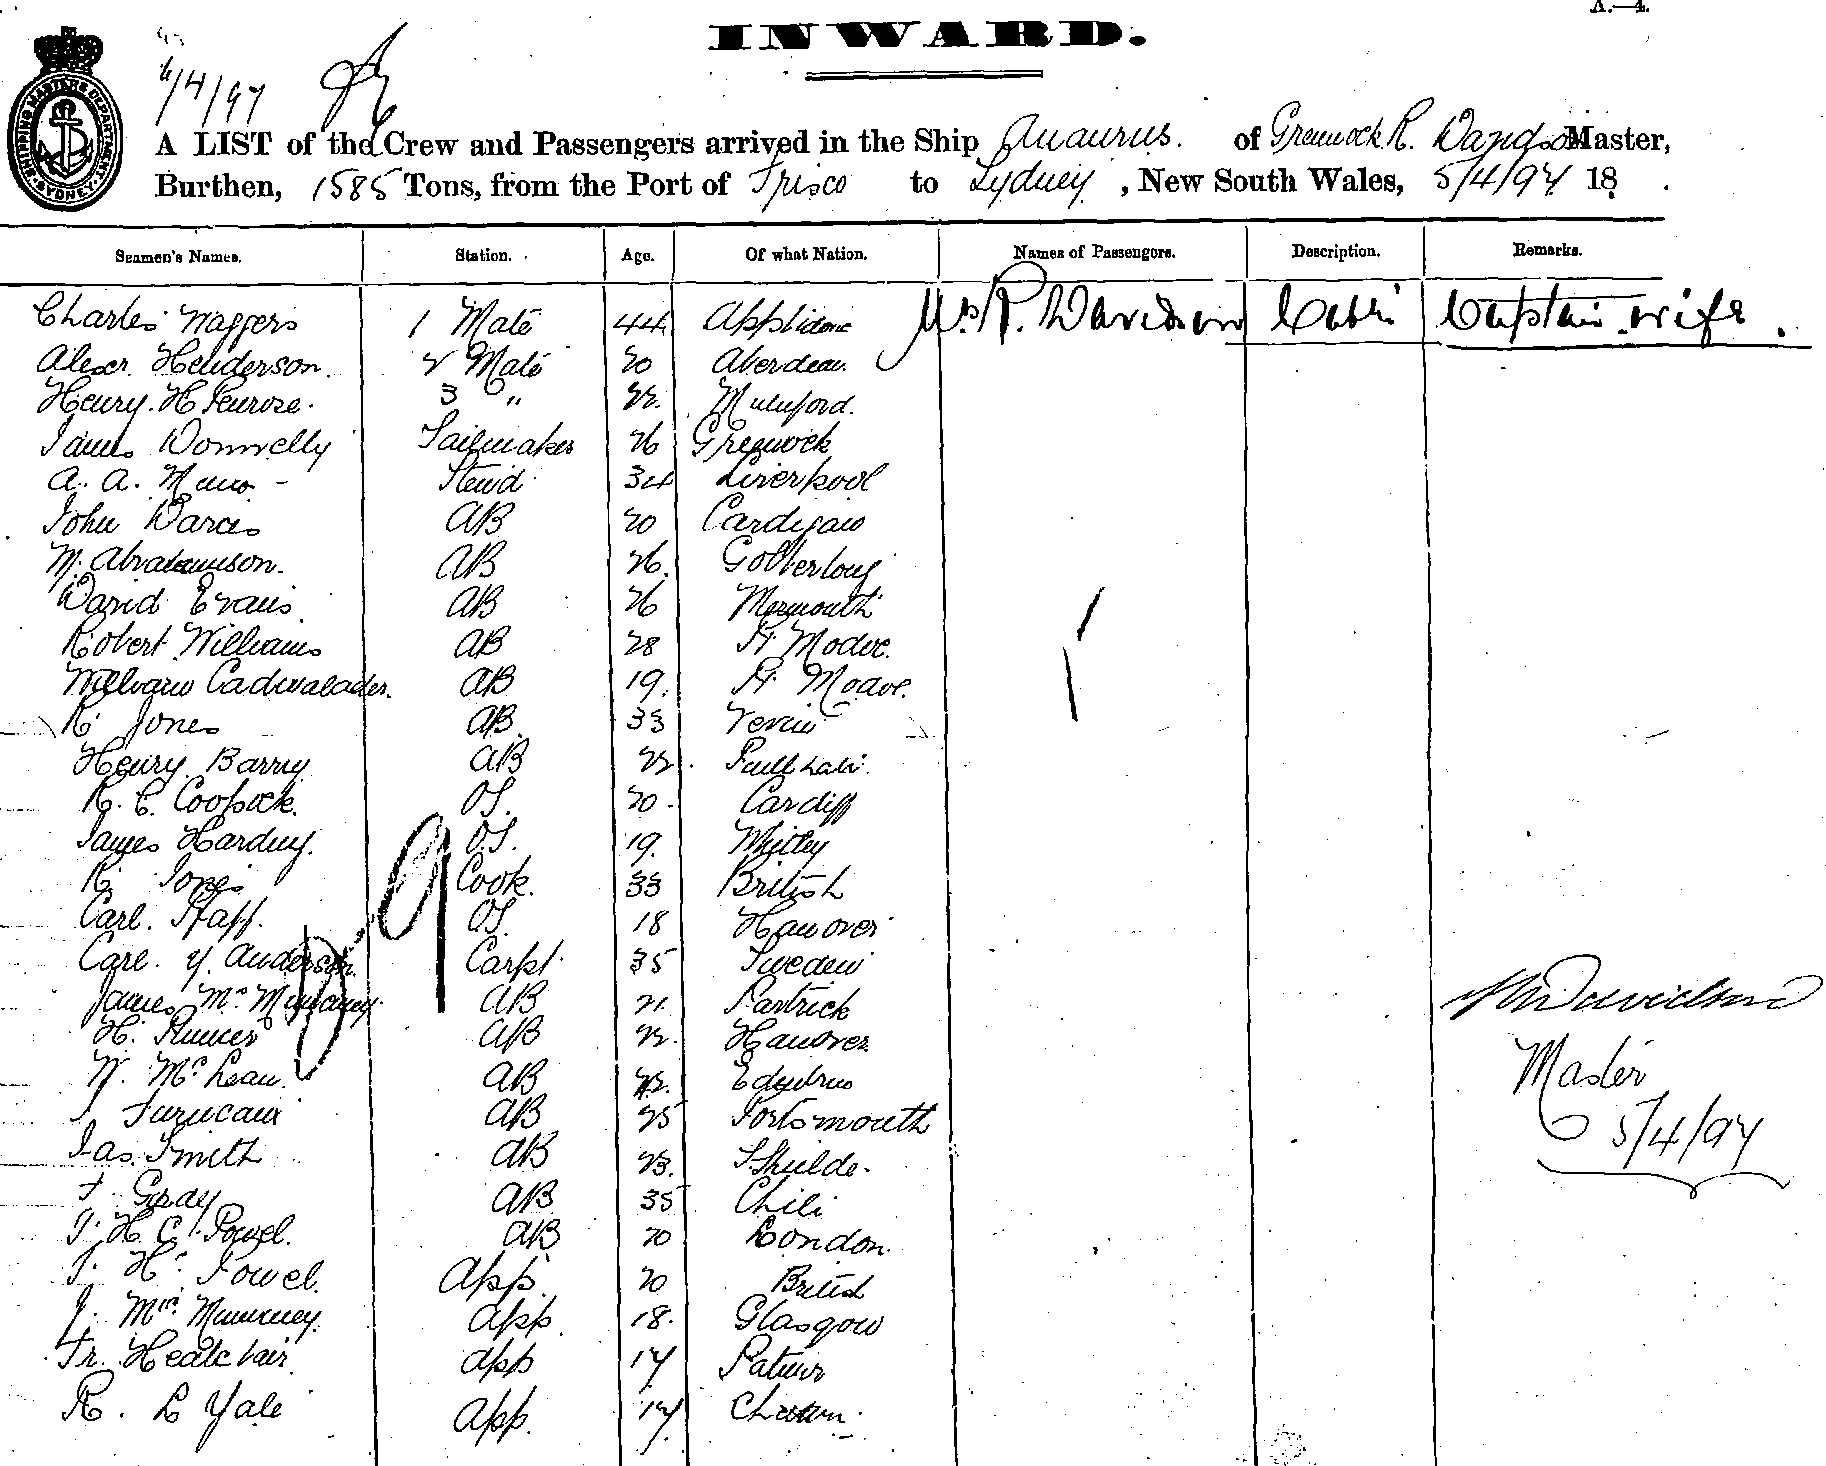 A.—4.
INWARD.
6/4/97
SHIPPING MASTERS DEPARTMENT SYDNEY
A LIST of the Crew and Passengers arrived in the Ship Anaurus. of Greenock R. Davidson Master,
Burthen, 1585 Tons, from the Port of Frisco to Sydney, New South Wales, 5/4/97 18 .
Seamen's Names. Station. Age. Of what Nation. Names of Passengers. Description. Remarks.
Charles 1 Mate 44 Mrs R. Davidson Cabin Captain wife.
Alexr. Henderson. 2 Mate 20 Aberdeen
Henry. H Penrose. 3 " 22.
James Donnelly Sailmaker 26 Greenock
A. A. Stewd 34 Liverpool
John AB 20 Cardigan
M. Abrahamson. AB 26.
David Evans AB 26
Robert Williams AB 28 Pt Madoc.
Cadwalader. AB 19. Pt Madoc.
R. Jones AB. 33
Henry Barry AB 22.
R. C. OS. 20. Cardiff
James OS. 19. Whitby
R. Jones Cook. 33 British
Carl. OS. 18 Hanover
Carl. Y. Anderson Carpt. 35 Sweden
James Mc AB 21. Partrick
H. AB 22. Hanover
Mc Lean. AB 22.
AB 25 Portsmouth
Jas. Smith AB 23. S Shields.
F. Gray AB 35 Chili
H. C. Powel. AB 20 London.
H. Powel. App. 20 British
J. Mc App. 18. Glasgow
Fr. App 17
R. L Yale App. 17
R Davidson
Master
5/4/97